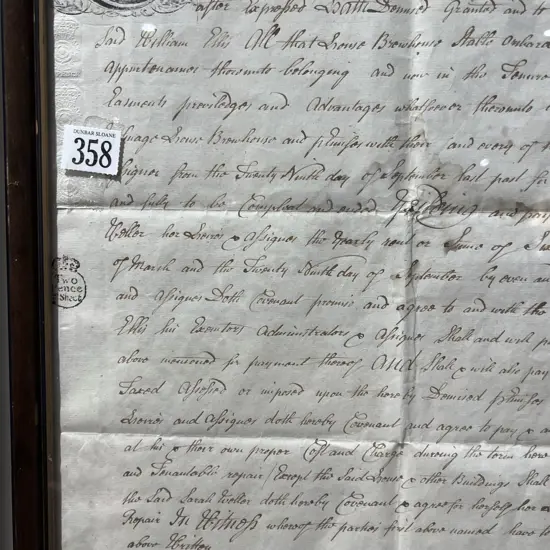 after Expressed Hath Demised Granted and to
Said William Ellis All that House Brewhouse Stable
Appurtenances thereunto belonging and now in the Tenure
Easments priviledges and Advantages whatsoever thereunto
House Brewhouse and pmisses with their and every of
Assignes from the Twenty Ninth day of September last past for
and fully to be Compleat and ended Yeilding and pay
Heller her Heires & Assignes the Yearly rent or Sume of
of March and the Twenty Ninth day of September by even
and assignes Doth Covenant promise and agree to and with the
Ellis his Exemtors Administrators & Assignes Shall and will
above menconed for payment thereof And Shall & will also pay
Taxed Assessed or imposed upon the hereby Demised pmisses
Heires and Assignes doth hereby Covenant and agree to pay &
at his & their own proper Cost and Charge during the term here
and Tenantable repair (Except the Said House & other Buildings Shall
the Said Sarah Heller doth hereby Covenant & agree for herself her
Repair In Witness whereof the parties first above named have
above Written
DUNBAR SLOANE
358
Two
pence
Sheet